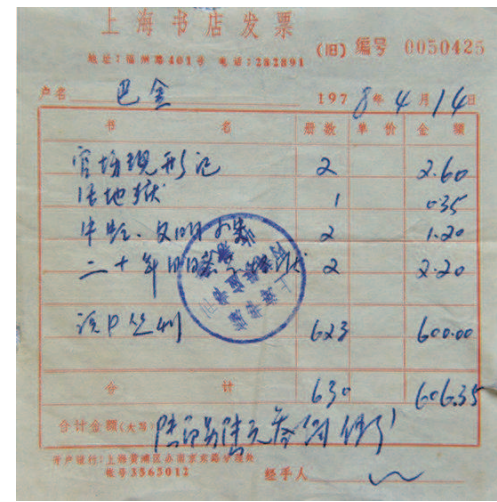 上海书店发票
地址:福州路401号 电话:282891
(旧) 编号 0050425
户名 巴金 1978年4月14日
书名 册数 单价 金额
官场现形记 2 2.60
活地狱 1 0.35
中 文明小史 2 1.20
二十年目睹 2 2.20
623 600.00
合计 630 606.35
合计金额(大写) 陆百另陆元叁角伍分
开户银行:上海黄浦区办南京东路分理处
账号3565012
经手人